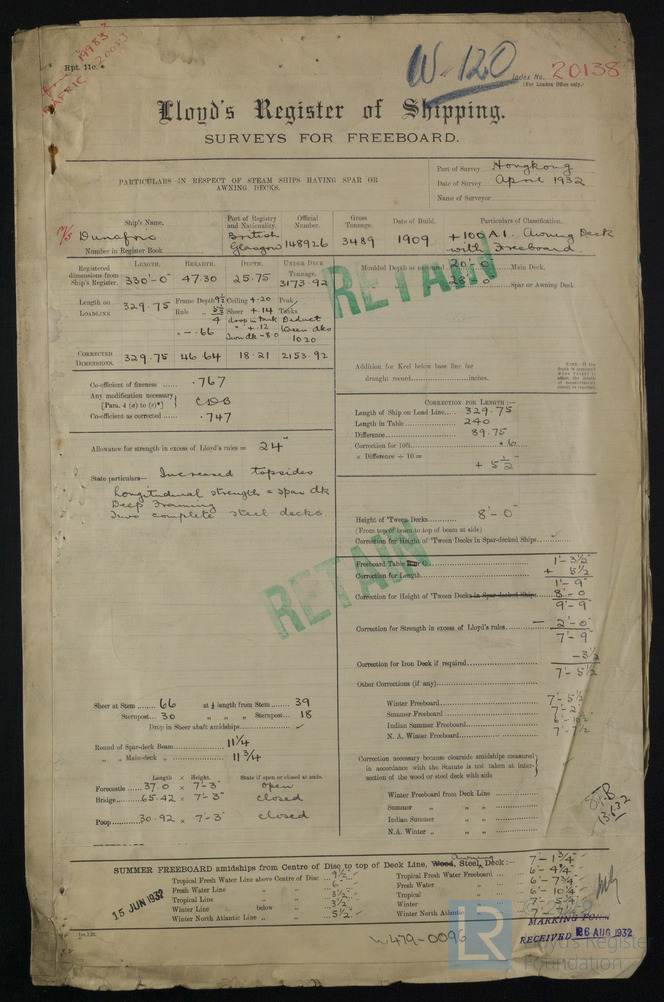 19983
20083
Rpt. 11c.
W-120
Index No. 20138
(For London Office only.)
Lloyd's Register of Shipping.
SURVEYS FOR FREEBOARD.
PARTICULARS IN RESPECT OF STEAM SHIPS HAVING SPAR OR AWNING DECKS.
Port of Survey Hongkong
Date of Survey April 1932
Name of Surveyor
Ship's Name. Port of Registry and Nationality. Official Number. Gross Tonnage. Date of Build. Particulars of Classification.
British Glasgow 148926 3489 1909 +100A1. Awning Deck with Freeboard
Number in Register Book
LENGTH. BREADTH. DEPTH. UNDER DECK TONNAGE.
Registered dimensions from Ship's Register. 330'-0" 47.30 25.75 3173.92
Moulded Depth as measured 20'-0" Main Deck.
28'-0" Spar or Awning Deck.
RETAIN
Length on LOADLINE 329.75
Frame Depth 9½ Ceiling +.20 Peak Tanks
Rule Sheer +.14 Deduct
- .66 1020
CORRECTED DIMENSIONS. 329.75 46.64 18.21 2153.92
Addition for Keel below base line for
draught record inches.
Co-efficient of fineness .767
Any modification necessary [Para. 4 (a) to (e)*]
Co-efficient as corrected .747
CORRECTION FOR LENGTH:—
Length of Ship on Load Line 329.75
Length in Table 240
Difference 89.75
Correction for 10ft. .6
× Difference ÷ 10 =
+ 5½"
Allowance for strength in excess of Lloyd's rules = 24"
State particulars— Increased topsides
Longitudinal strength = spar dk
Deep Framing
Two complete steel decks
Height of 'Tween Decks 8'-0"
(From top of beam to top of beam at side)
Correction for Height of 'Tween Decks in Spar-decked Ships
RETAIN
Freeboard Table C 1'-3½"
Correction for Length + 5½
1'-9"
Correction for Height of 'Tween Decks in Spar-decked Ships 8'-0
9'-9"
Correction for Strength in excess of Lloyd's rules — 2'-0"
7'-9"
Correction for Iron Deck if required -3½
7'-5½
Other Corrections (if any)
Winter Freeboard 7'-5½
Summer Freeboard
Indian Summer Freeboard
N. A. Winter Freeboard
Sheer at Stem 66 at ⅛ length from Stem 39
Sternpost 30 " " " Sternpost 18
Drop in Sheer abaft amidships
Round of Spar-deck Beam 11¼
" " Main-deck " 11¾
Length × Height. State if open or closed at ends.
Forecastle 37.0 × 7'-3" open
Bridge 65.42 × 7'-3" closed
Poop 30.92 × 7'-3 closed
Correction necessary because clearside amidships measured
in accordance with the Statute is not taken at inter-
section of the wood or steel deck with side
Winter Freeboard from Deck Line
Summer " "
Indian Summer " "
N.A. Winter " "
13.6.32
SUMMER FREEBOARD amidships from Centre of Disc to top of Deck Line, Wood, Steel, Awning Deck:— 7'-1¾"
Tropical Fresh Water Line above Centre of Disc 9½ Tropical Fresh Water Freeboard 6'-4¼"
Fresh Water Line " " 6 Fresh Water " 6'-7¾"
Tropical Line " " 3½ Tropical " 6'-10¼"
Winter Line below " 3½ Winter " 7'-5¼"
Winter North Atlantic Line " " 5½ Winter North Atlantic
15 JUN 1932
MARKING FORM
RECEIVED 26 AUG 1932
W479-0096
LR
Lloyd's Register
Foundation